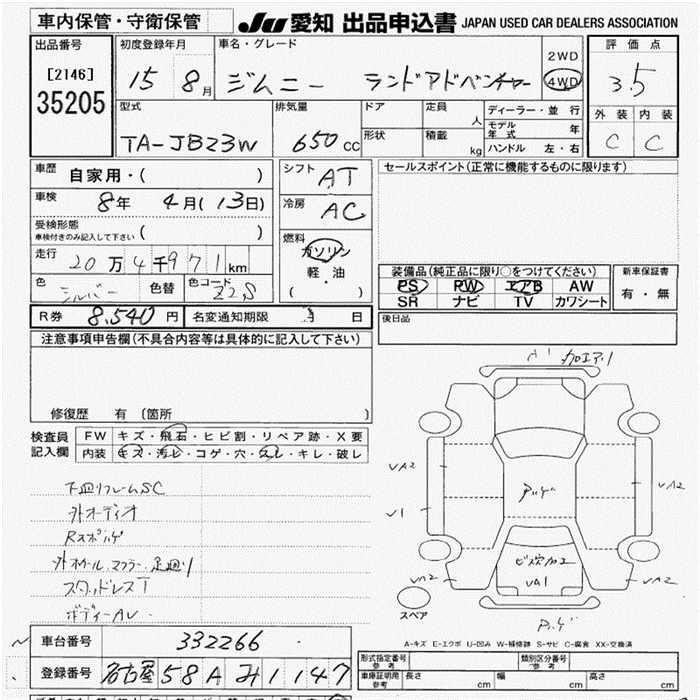 車内保管・守衛保管
JU 愛知 出品申込書 JAPAN USED CAR DEALERS ASSOCIATION
出品番号
[2146]
35205
初度登録年月
15 8月
車名・グレード
ジムニー ランドアドベンチャー
2WD
4WD
評価点
3.5
外装 内装
C C
型式
TA-JB23W
排気量
650cc
ドア
形状
定員 人
積載 kg
ディーラー・並行
モデル年式 年
ハンドル 左・右
車歴 自家用・( )
車検 8年 4月(13日)
受検形態
車検付きのみ記入して下さい ( )
走行 20万4千971km
色 シルバー 色替 色コード Z2S
シフト AT
冷房 AC
燃料
ガソリン
軽・油
( )
セールスポイント(正常に機能するものに限ります)
装備品(純正品に限り○をつけてください)
PS PW エアB AW
SR ナビ TV カワシート
新車保証書
有・無
R券 8,540円 名変通知期限 月 日
後日品
注意事項申告欄(不具合内容等は具体的に記入して下さい)
修復歴 有 (箇所 )
検査員記入欄
FW キズ・飛石・ヒビ割・リペア跡・X要
内装 キズ・汚れ・コゲ・穴・スレ・キレ・破レ
下廻リフレームSC
外オーディオ
Rスポイラ
外ホイール、マフラー、足廻リ
スタッドレスT
ボディーAU
A1 加エアリ
UA2
U1
UA2
UA2
UA2
ビス穴加エ
UA1
スペア
A-キズ E-エクボ U-凹み W-補修跡 S-サビ C-腐食 XX-交換済
車台番号 332266
登録番号 名古屋58Aみ1147
形式指定番号 参考
類別区分番号 参考
車庫証明用 参考
長さ cm 幅 cm 高さ cm